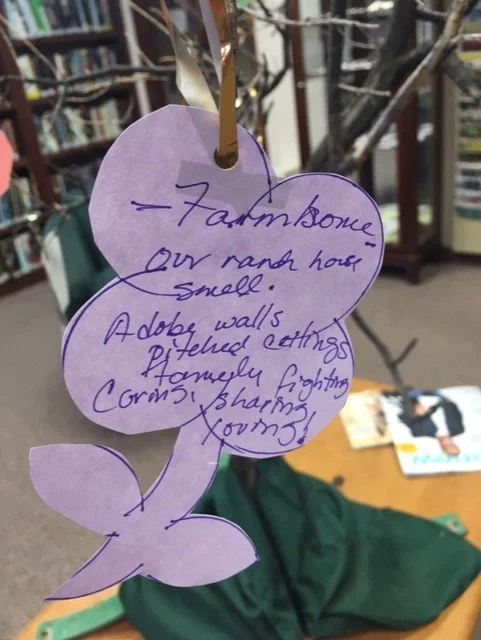 - Farm home -
Our ranch house
smell.
Adobe walls
Pitched ceilings
Family fighting
Caring, sharing
loving!